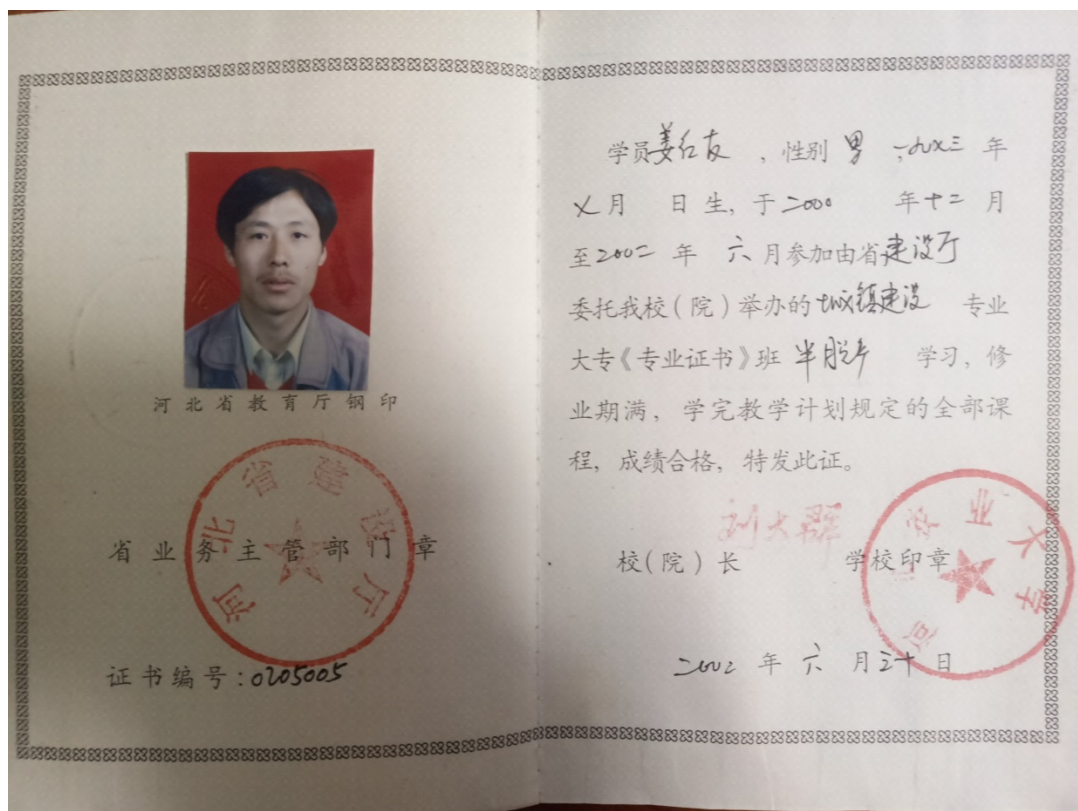 河北省教育厅钢印
河北省建设厅
省业务主管部门章
证书编号:0205005
学员姜红友 ,性别 男 ,一九七三 年
七月 日生,于二000 年十二月
至2002 年 六月参加由省建设厅
委托我校(院)举办的城镇建设 专业
大专《专业证书》班 半脱产 学习,修
业期满,学完教学计划规定的全部课
程,成绩合格,特发此证。
刘大群
校(院)长 学校印章
二00二 年 六 月三十日